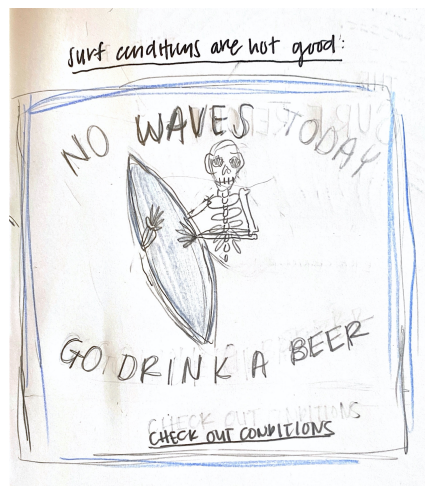 surf conditions are not good:
NO WAVES TODAY
GO DRINK A BEER
CHECK OUT CONDITIONS